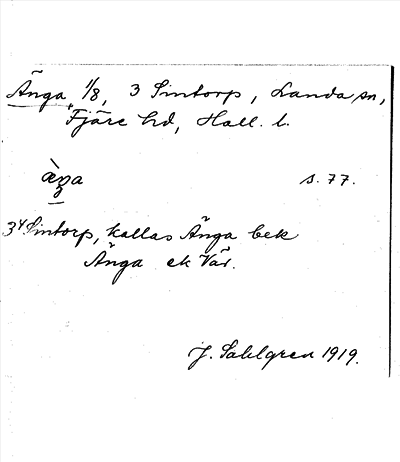 Änga 1/8, 3 Sintorp, Landa sn,
Fjäre hd, Hall. l.
s. 77.
34 Sintorp, kallas Änga bek
Änga ek Vär.
J. Sahlgren 1919.